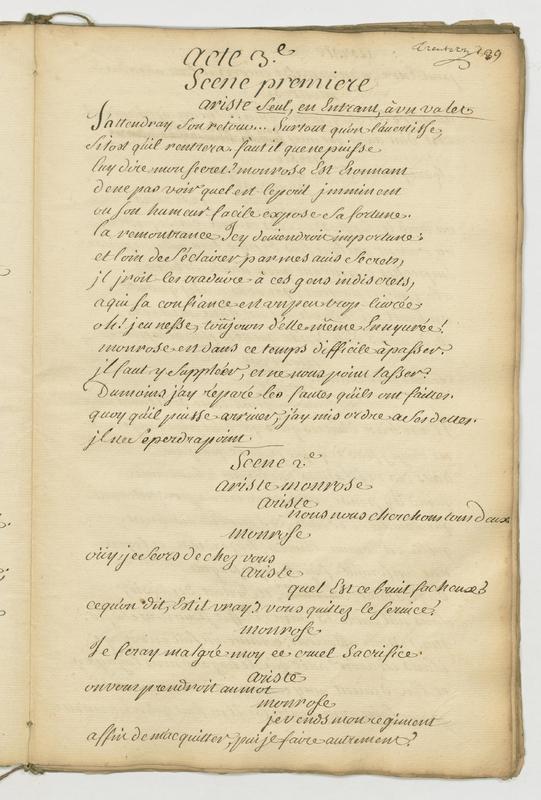 acte 3.e
Scene premiere
ariste Seul, en Entrant, à vn valet
J'attendray Son retour... Surtout qu'on l'auertisse,
Sitost qu'il rentrera. faut il que ne puisse
luy dire mon Secret? monrose Est Etonnant
de ne pas voir quel est le peril imminent
ou Son humeur facile expose Sa fortune.
la remontrance Icy deuiendroit importune:
et loin de S'éclairer par mes auis Secrets,
jl jroit les traduire à ces gens indiscrets,
a qui Sa confiance est un peu trop liurée,
oh! jeunesse, toüjours d'elle même Enyurée!
monrose est dans ce temps difficile à passer.
jl faut y Suppléer, et ne nous point lasser.
Du moins j'ay réparé les fautes qu'ils ont faittes.
quoy qu'il puisse arriuer, j'ay mis ordre a Ses dettes.
jl ne Se perdra point.
Scene 2.e
ariste monrose
ariste
nous nous cherchons tous deux
monrose
oüy, je Sors de chez vous
ariste
quel Est ce bruit facheux?
ce qu'on dit, Est il vray? vous quittez le Seruice?
monrose
Je feray malgré moy ce cruel Sacrifice.
ariste
on vous prendroit au mot
monrose
je vends mon regiment
affin de m'acquitter, puis je faire autrement?